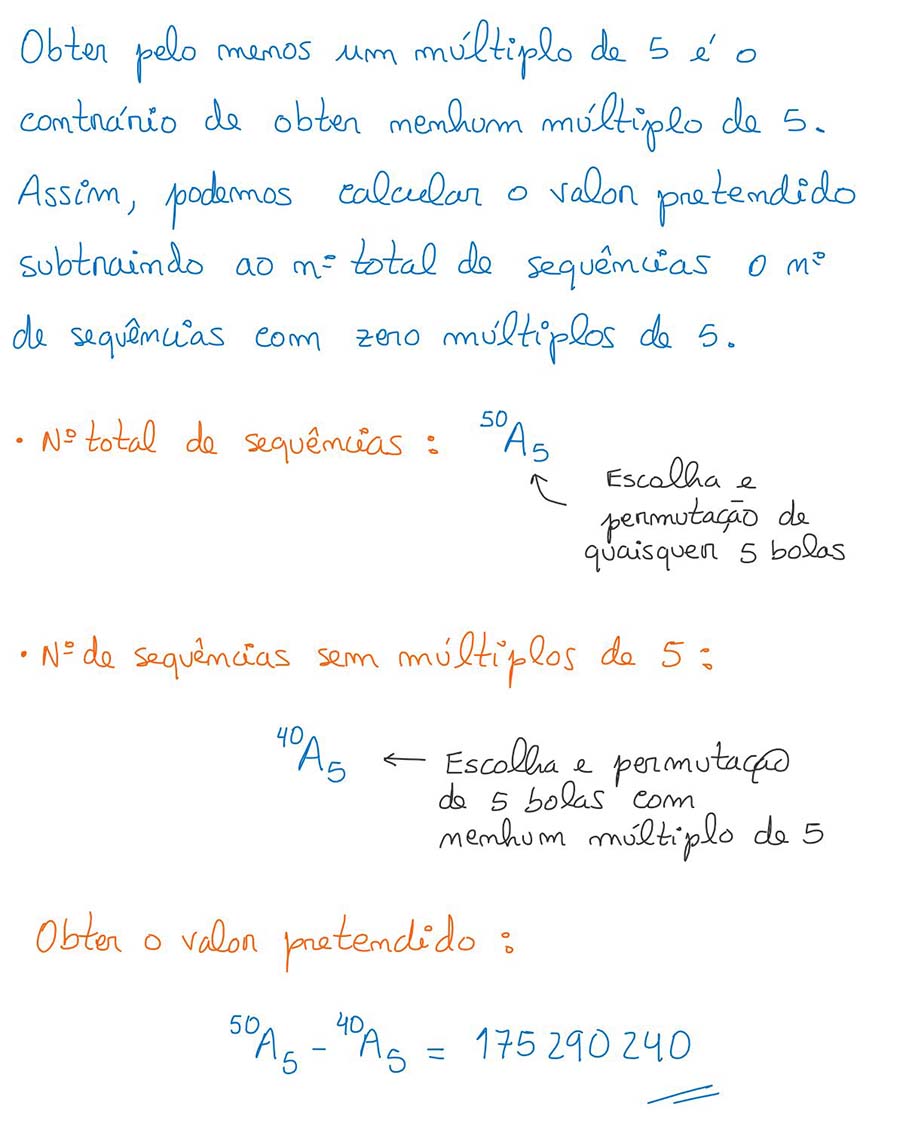 Obter pelo menos um múltiplo de 5 é o
contrário de obter nenhum múltiplo de 5.
Assim, podemos calcular o valor pretendido
subtraindo ao nº total de sequências o nº
de sequências com zero múltiplos de 5.
• Nº total de sequências : ⁵⁰A₅
Escolha e
permutação de
quaisquer 5 bolas
• Nº de sequências sem múltiplos de 5 :
⁴⁰A₅ ← Escolha e permutação
de 5 bolas com
nenhum múltiplo de 5
Obter o valor pretendido :
⁵⁰A₅ - ⁴⁰A₅ = 175 290 240